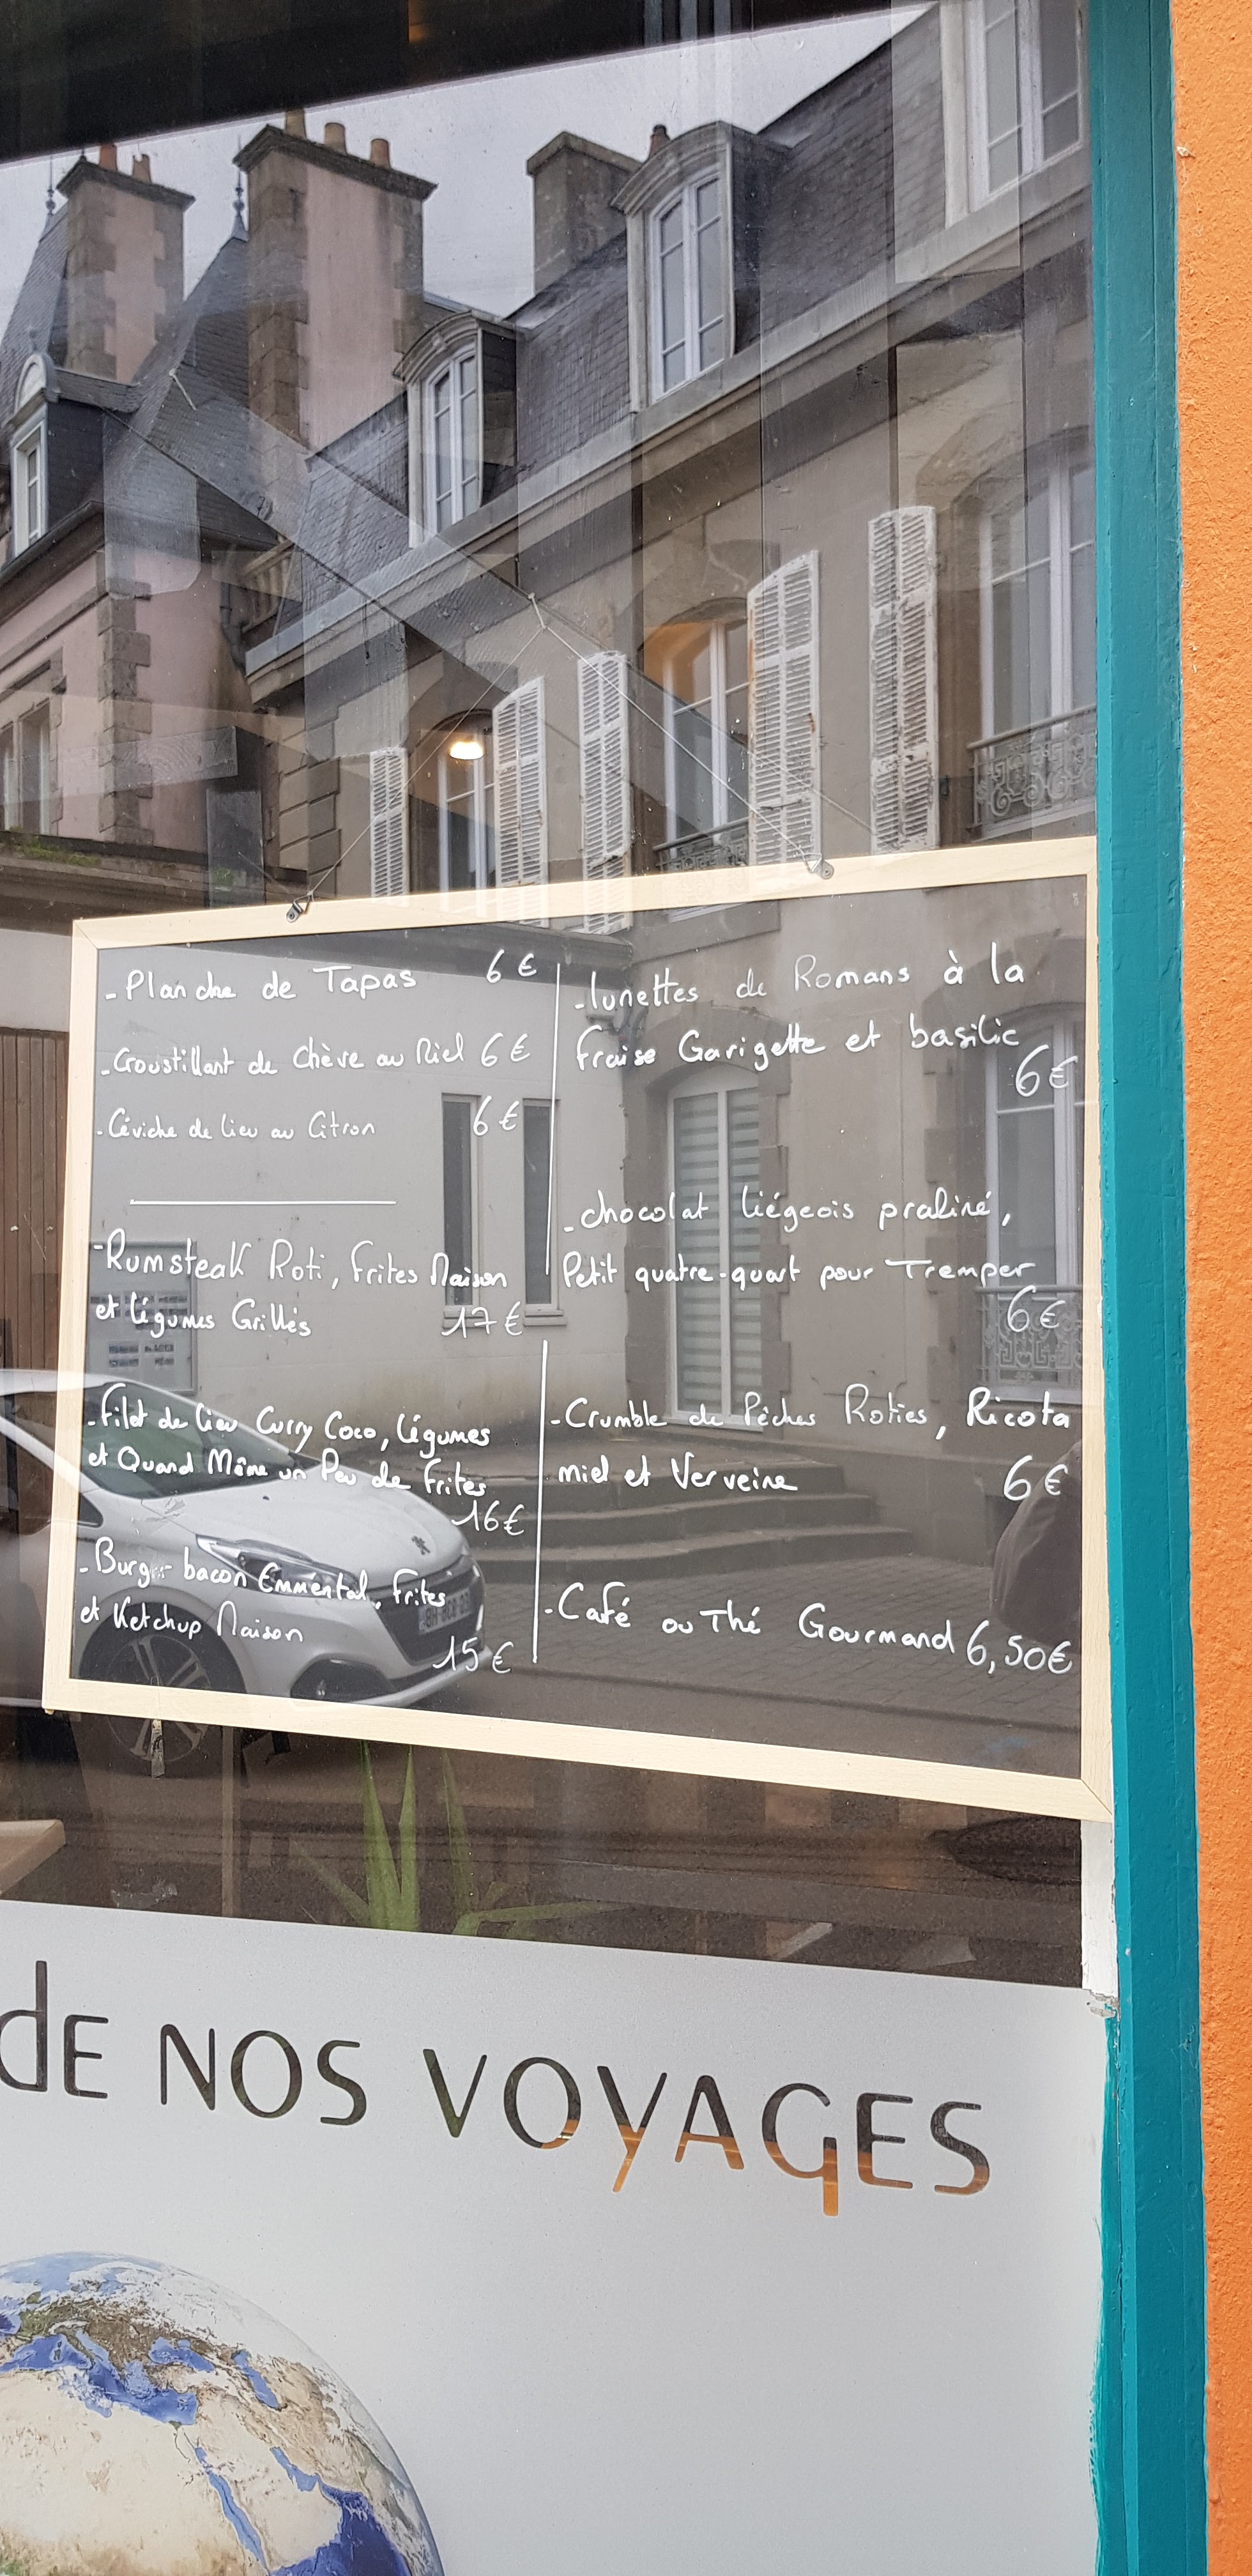 - Planche de Tapas 6€
- Croustillant de Chève au Miel 6€
- Céviche de lieu au Citron 6€
- Rumsteak Roti, Frites Maison
et légumes Grillés 17€
- Filet de lieu Curry Coco, légumes
et Quand Même un Peu de frites
16€
- Burger bacon Emmental, Frites
et Ketchup Maison
15€
- lunettes de Romans à la
fraise Garigette et basilic
6€
- chocolat liégeois praliné,
Petit quatre-quart pour Tremper
6€
- Crumble de Pêches Roties, Ricota
miel et Verveine 6€
- Café ou Thé Gourmand 6,50€
dE NOS VOYAGES